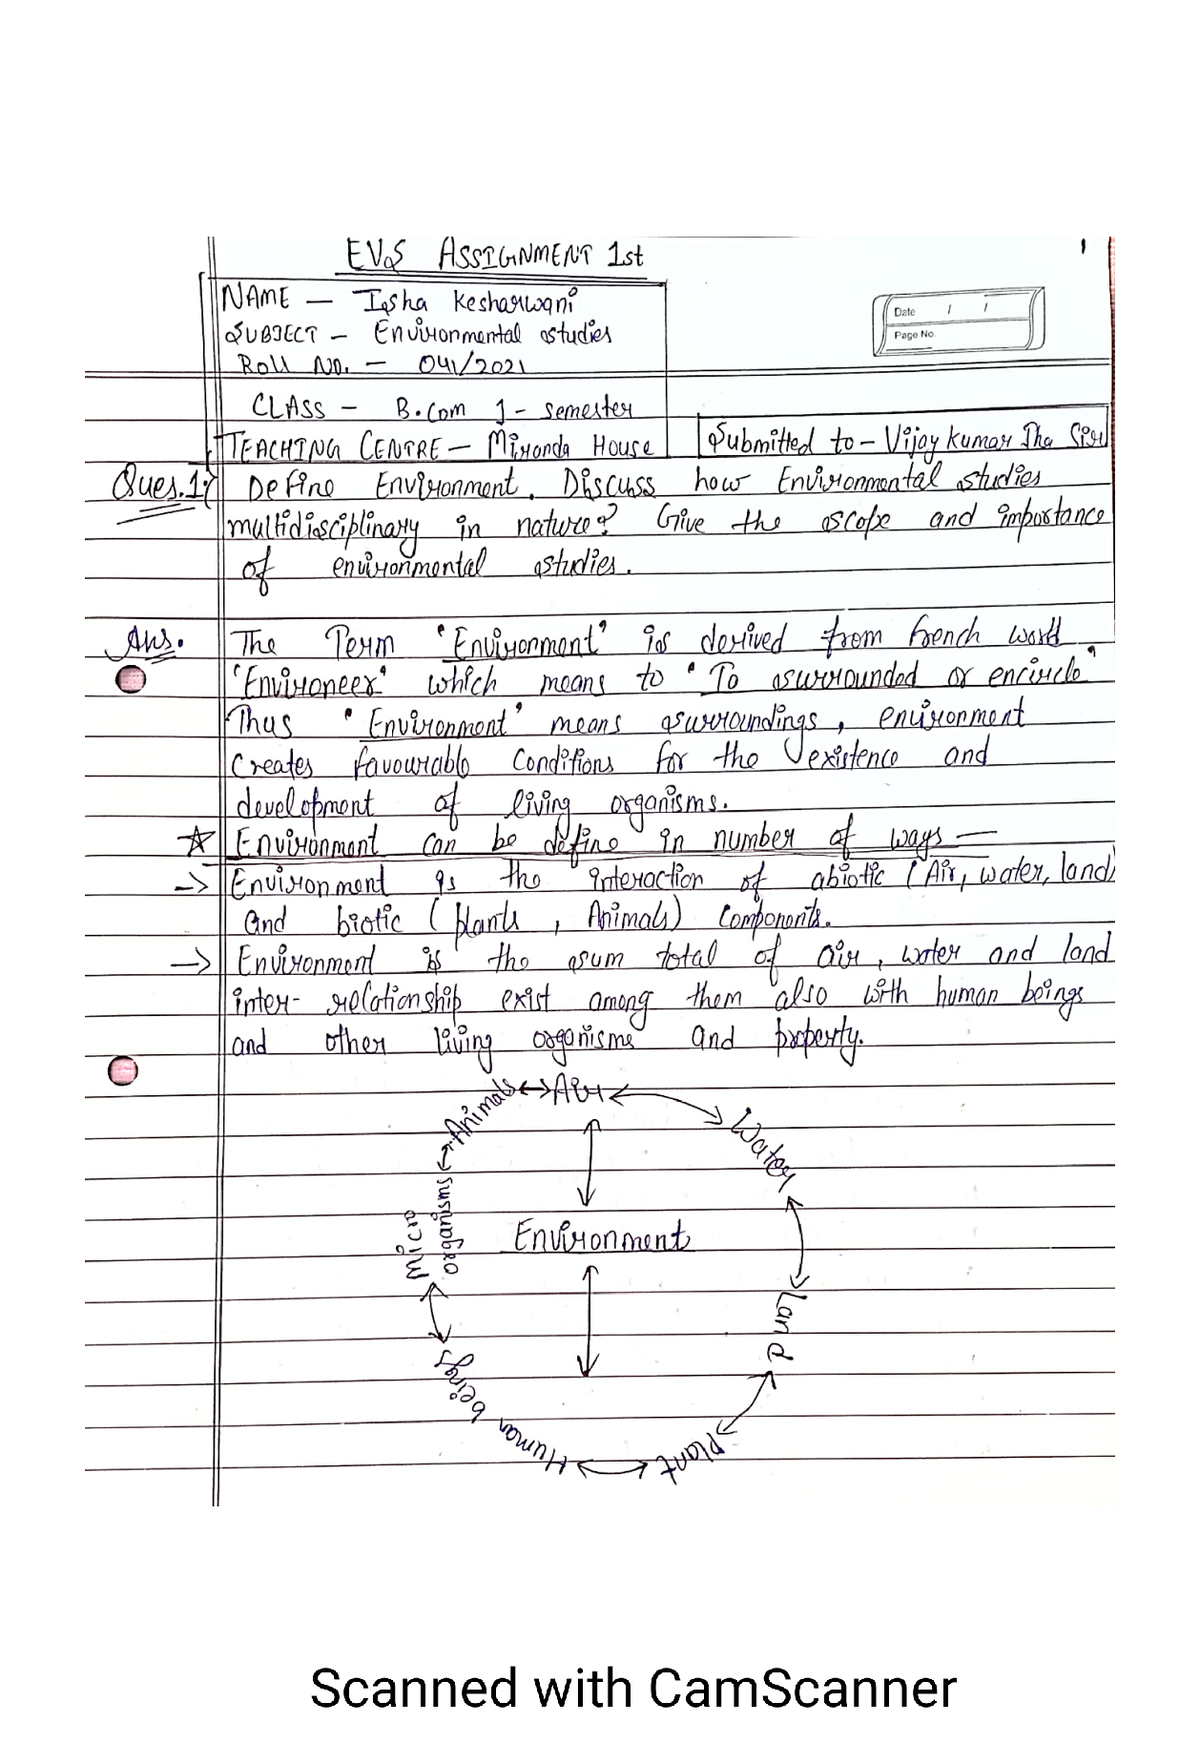 EVS ASSIGNMENT 1st
1
NAME — Isha Kesharwani
SUBJECT — Environmental studies
Date / /
Page No.
ROLL NO. — 041/2021
CLASS — B.Com 1 - semester
TEACHING CENTRE — Miranda House
Submitted to — Vijay Kumar Jha Sir
Ques.1 Define Environment. Discuss how Environmental studies
multidisciplinary in nature? Give the scope and importance
of environmental studies.
Ans. The Term "Environment" is derived from French word
'Environeer' which means to "To surrounded or encircle"
Thus "Environment" means surroundings, environment
creates favourable conditions for the existence and
development of living organisms.
☆ Environment can be define in number of ways —
-> Environment is the interaction of abiotic (Air, water, land)
and biotic (plants, Animals) components.
-> Environment is the sum total of air, water and land
inter-relationship exist among them also with human beings
and other living organisms and property.
Air
Water
Land
Plant
Human beings
Micro organisms
Animals
Environment
Scanned with CamScanner